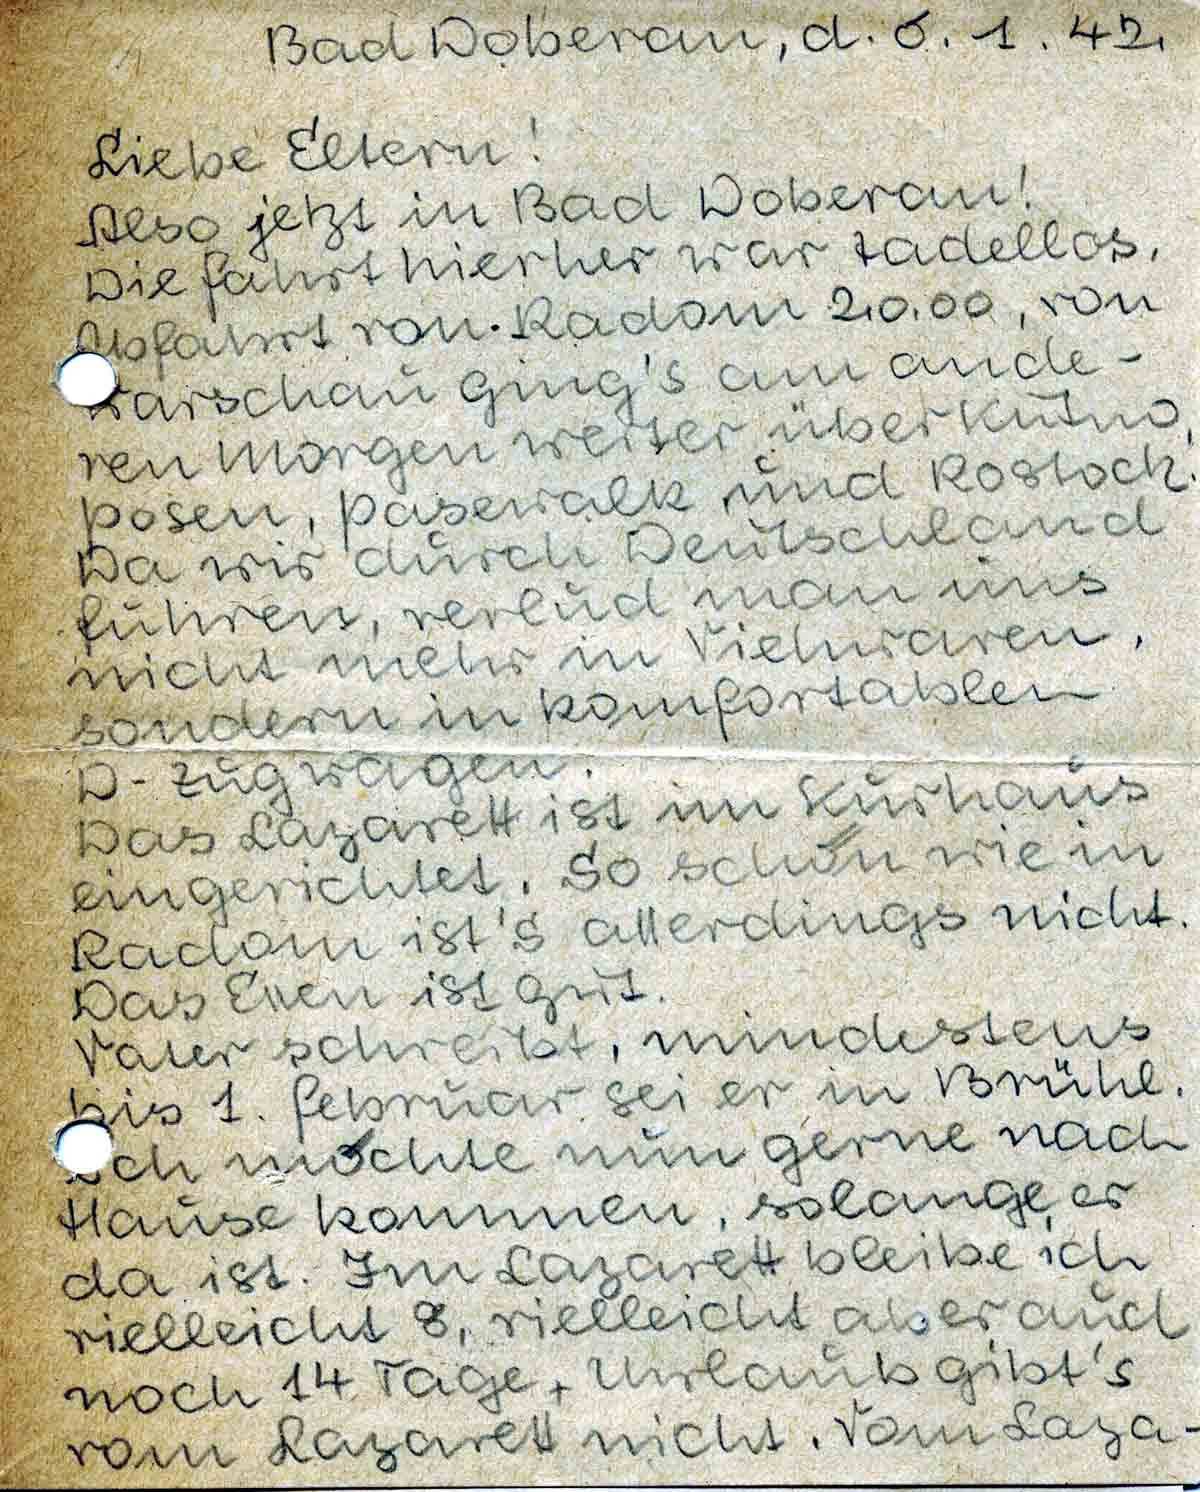 Bad Doberan, d. 6. 1. 42.
Liebe Eltern!
Also jetzt in Bad Doberan!
Die Fahrt hierher war tadellos.
Abfahrt von Radom 20.00, von
Warschau ging's am ande-
ren Morgen weiter über Kutno,
Posen, Pasewalk und Rostock.
Da wir durch Deutschland
fuhren, verlud man uns
nicht mehr in Viehwaren,
sondern in komfortablen
D-Zugwagen.
Das Lazarett ist im Kurhaus
eingerichtet. So schön wie in
Radom ist's allerdings nicht.
Das Essen ist gut.
Vater schreibt, mindestens
bis 1. Februar sei er in Brühl.
Ich möchte nun gerne nach
Hause kommen, solange er
da ist. Im Lazarett bleibe ich
vielleicht 8, vielleicht aber auch
noch 14 Tage, Urlaub gibt's
vom Lazarett nicht. Vom Laza-